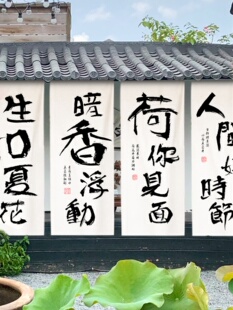 人間好時節
荷你見面
暗香浮動
生如夏花